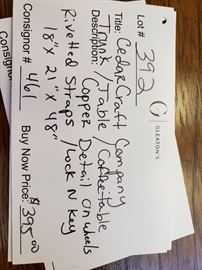 Lot# 392
GLEATON'S
Title: CedarCraft Company
Description: Trunk/Table/Coffeetable
Copper Detail On wheels
Rivetted Straps/Lock N Key
18" x 21" x 48"
Consignor# 461 Buy Now Price: $395.00
Consignor